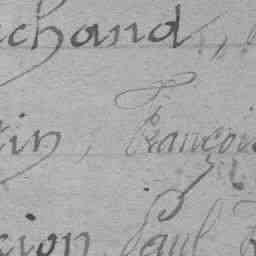 chand,
tin, Françoi
cion, Paul